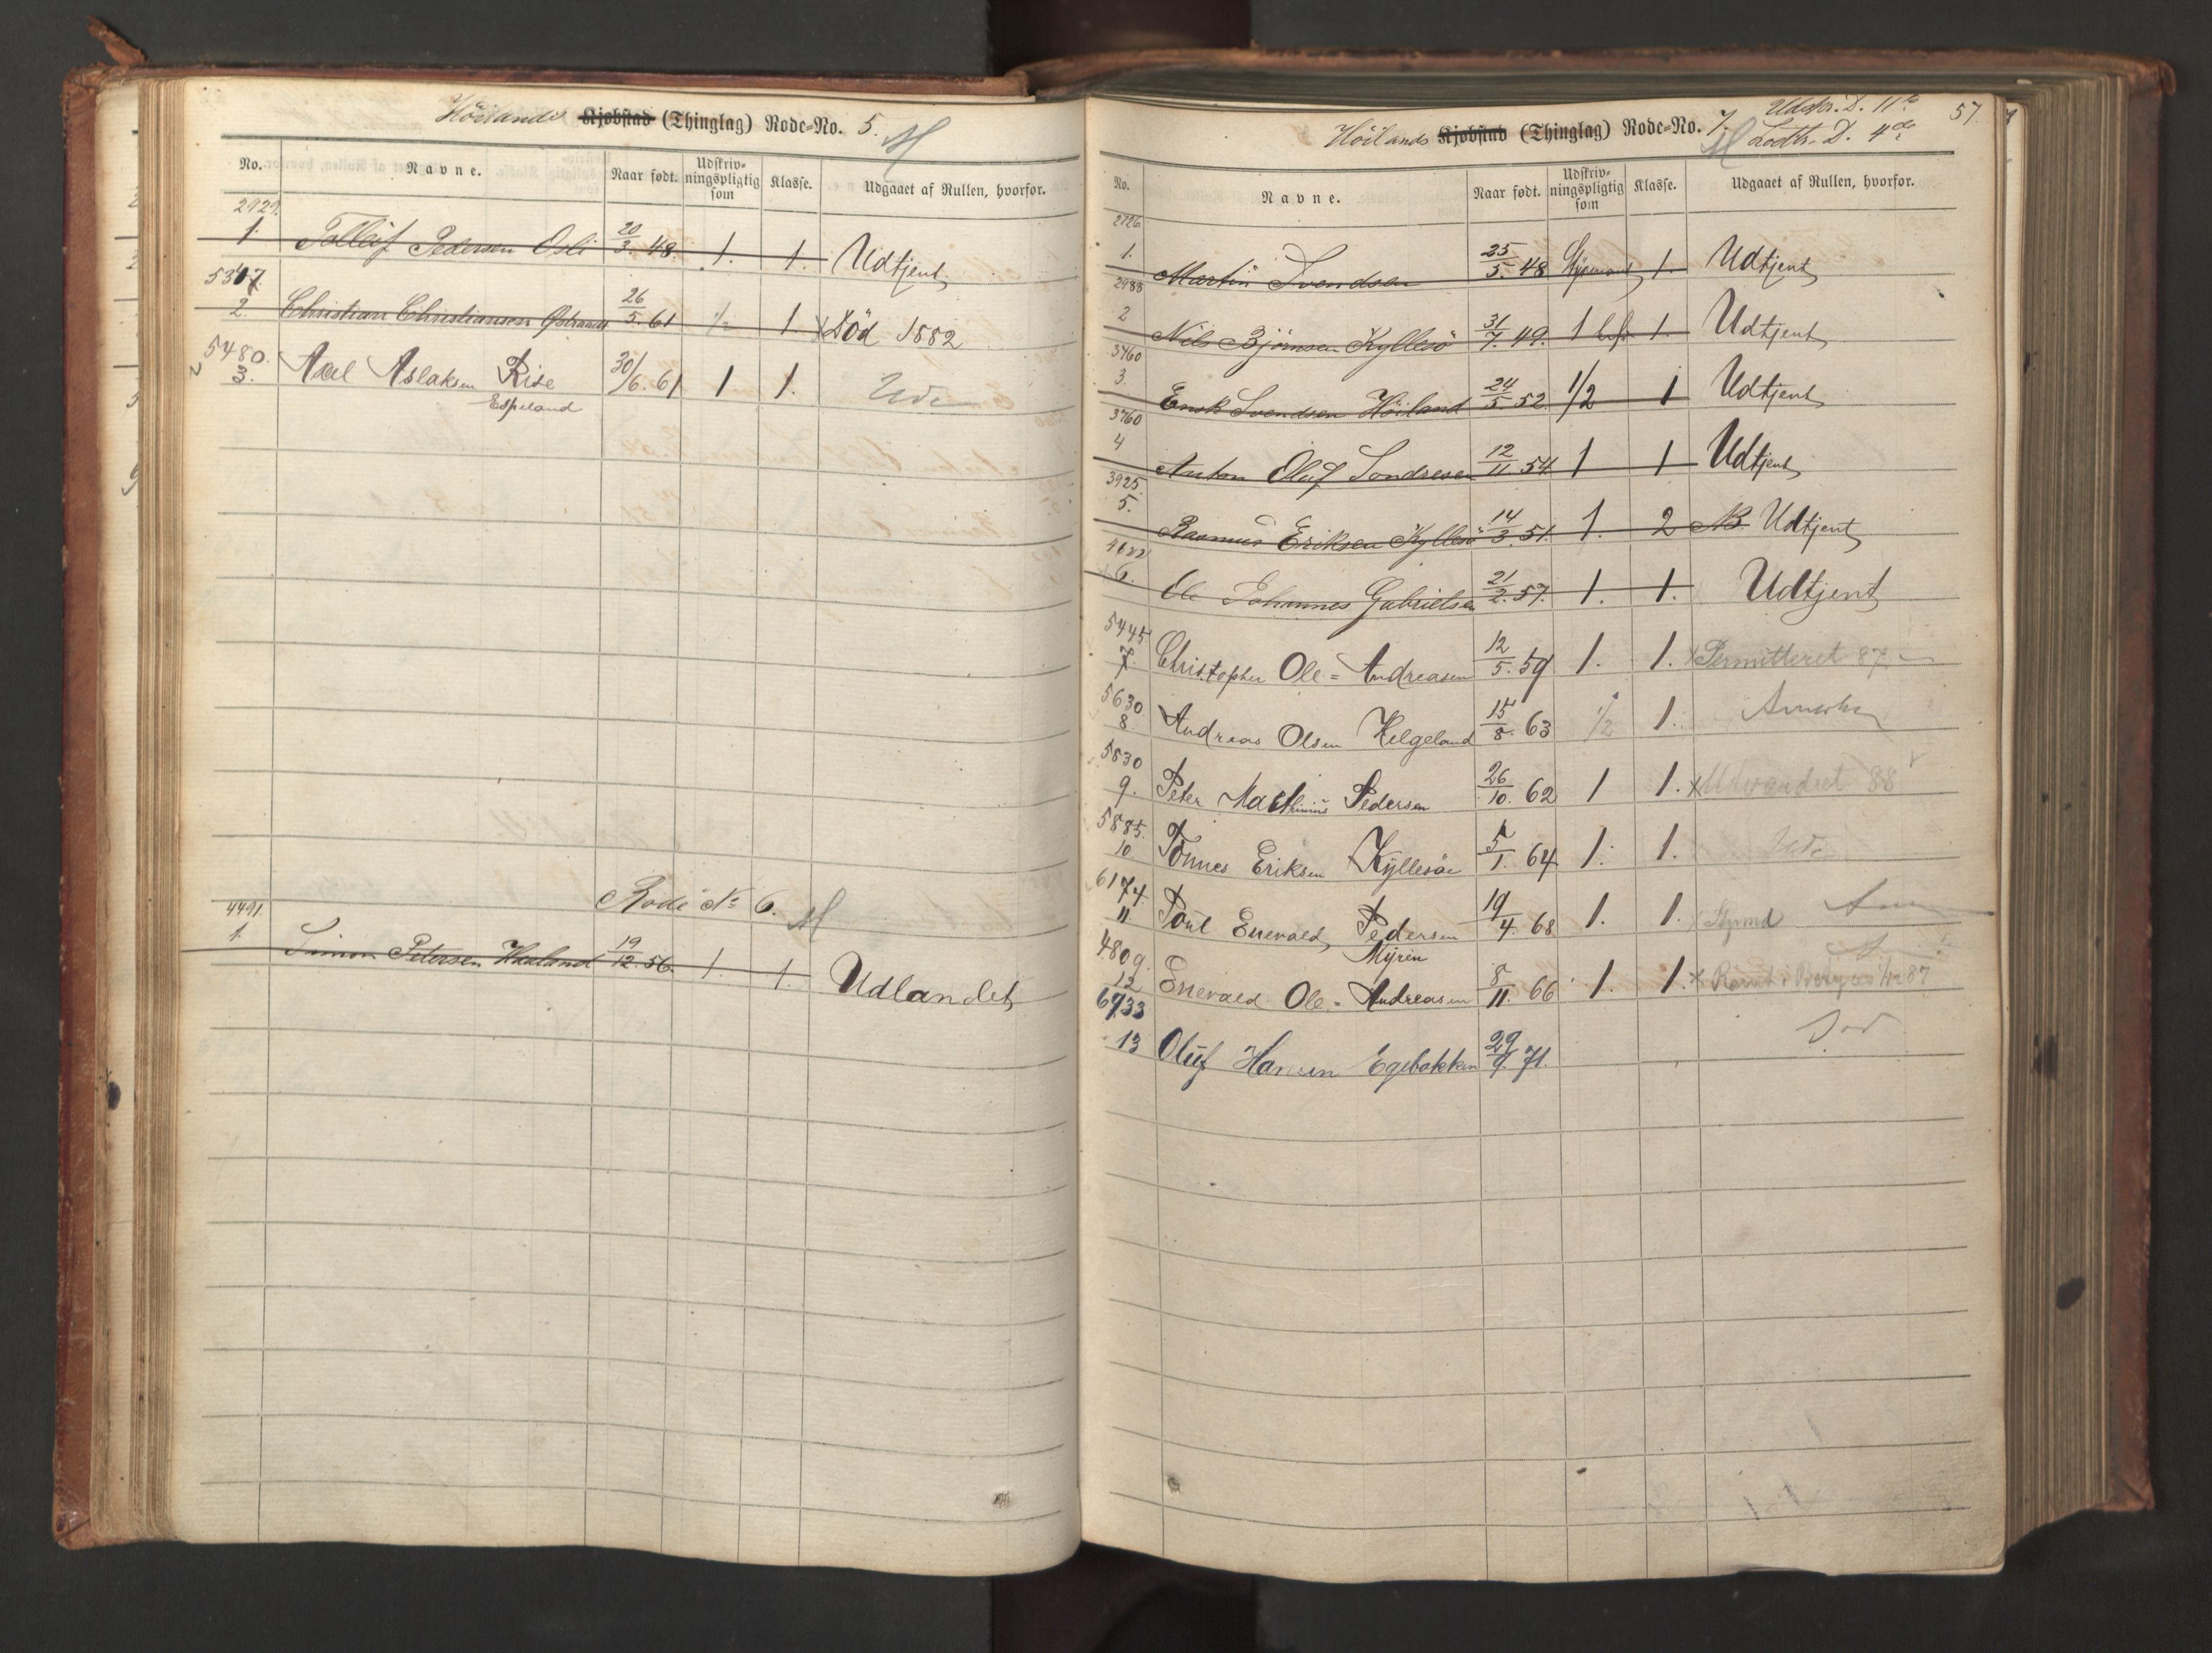 Höilands Kjøbstad (Thinglag) Rode-No. 5. M
No. Navne. Naar født. Udskriv-ningspligtig som Klasse. Udgaaet af Rullen, hvorfor.
2929.
1. Tolleif Pedersen Osli 20/3. 48. 1. 1. Udtjent
5347
2. Christian Christiansen 26/5. 61 1/2 1. Død 1882
5480.
3. Aael Aslaksen Rise 30/6. 61 1 1. Ude
Espeland
Rode No 6. M
4491.
1. Simon Petersen Haaland 19/12. 56. 1. 1. Udlandet
Höilands Kjøbstad (Thinglag) Rode-No. 7. M
Udskr. D. 11te
Lodts. D. 4de
57.
No. Navne. Naar født. Udskriv-ningspligtig som Klasse. Udgaaet af Rullen, hvorfor.
2126
1. Martin Svendsen 25/5. 48 Styrmand 1. Udtjent
2988
2 Nils Björnsen Kyllesö 31/7. 49. 1 1. Udtjent
3760
3. Enok Svendsen Höiland 24/5. 52. 1/2 1 Udtjent
3760
4 Anton Oluf Sondresen 12/11 54 1 1 Udtjent
3925.
5. Rasmus Eriksen Kyllesö 14/3. 51. 1. 2 NB. Udtjent
4622
6. Ole Johannes Gabrielsen 21/2. 57. 1. 1. Udtjent
5445
7. Christopher Ole=Andreasen 12/5. 59 1. 1. x Permitteret 87.
5630
8. Andreas Olsen Helgeland 15/8. 63 1/2 1. Amerika
5830
9. Peter Mathinius Pedersen 26/10. 62 1 1. x Udvandret 88
5885.
10 Tönnes Eriksen Kyllesöe 5/1. 64 1. 1. Ude
6174
11 Poul Enevald Pedersen 19/4. 68 1. 1. x Stymd
Myren
4809.
12 Enevald Ole=Andreasen 8/11 66 1. 1. x
6933
13 Oluf Hansen Egebakken 29/9. 71.